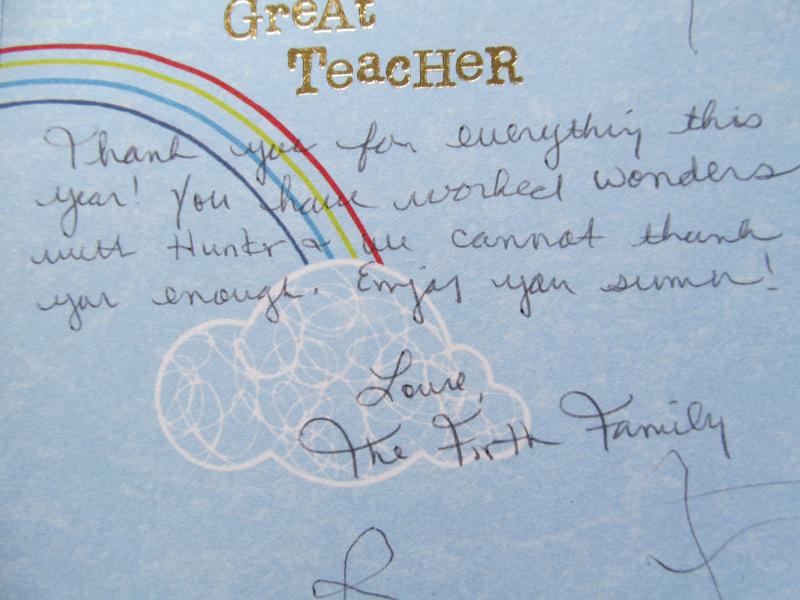 GreAt
TeacHeR
Thank you for everything this
year! You have worked wonders
with Hunter & we cannot thank
you enough. Enjoy your summer!
Love,
The Firth Family